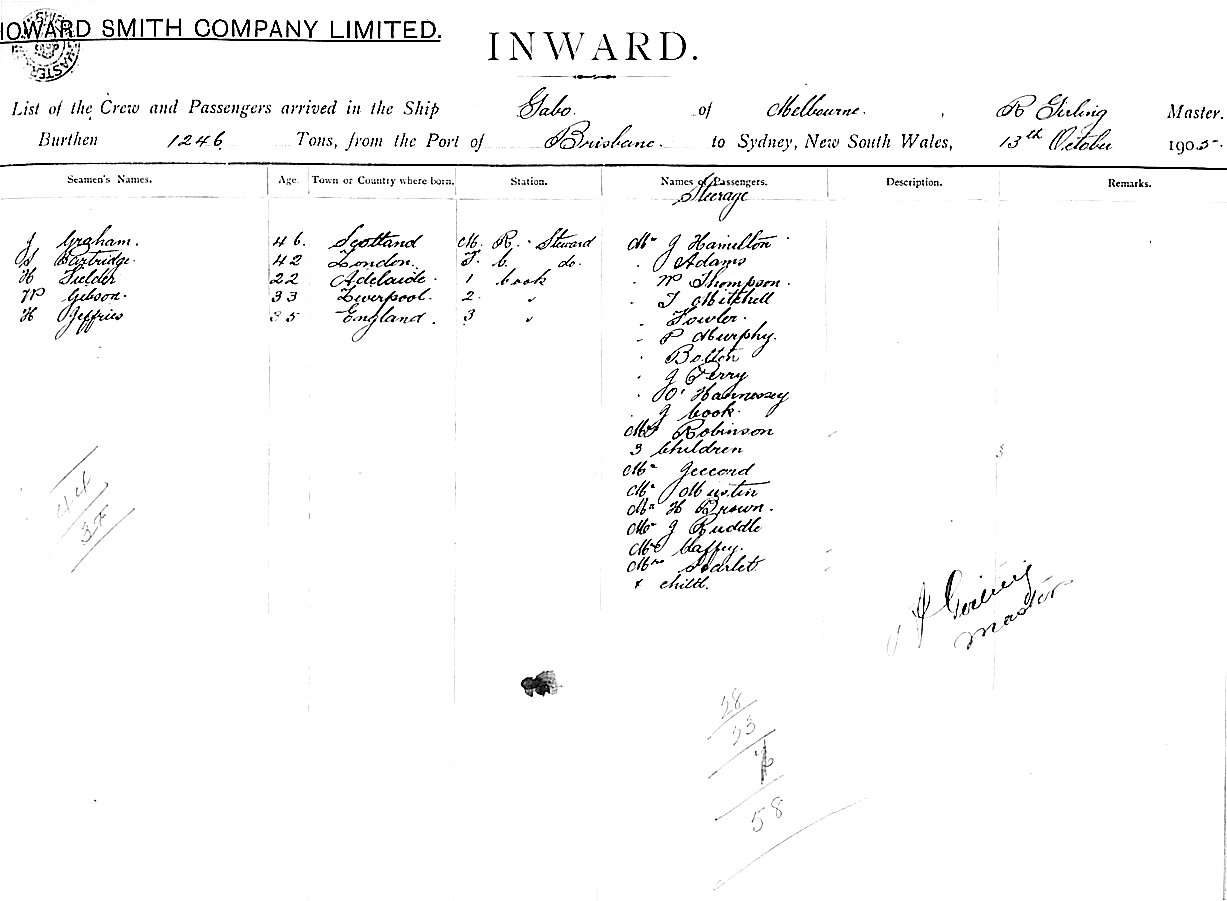 HOWARD SMITH COMPANY LIMITED.
INWARD.
List of the Crew and Passengers arrived in the Ship Gabo. of Melbourne. , R Girling Master.
Burthen 1246 Tons, from the Port of Brisbane. to Sydney, New South Wales, 13th October 1905.
Seamen's Names. Age. Town or Country where born. Station. Names of Passengers. Description. Remarks.
Steerage
J Graham. 46. Scotland M. R. Steward Mr J Hamilton
S Partridge. 42 London. F. C. do. " Adams
H Fielder 22 Adelaide. 1 Cook " W Thompson.
W Gibson. 33 Liverpool. 2. " " T Mitchell
H Jeffries 35 England. 3 " " Fowler.
" P Murphy.
" Bolton
" J Perry
" O'Hannessey
" J Cook.
Mrs Robinson
3 Children 3
Mr
Mr Mustin
Mr H Brown.
Mr J Ruddle
Mrs Caffey.
Mrs Scarlet
& child.
44
37
R Girling
Master
28
33
58